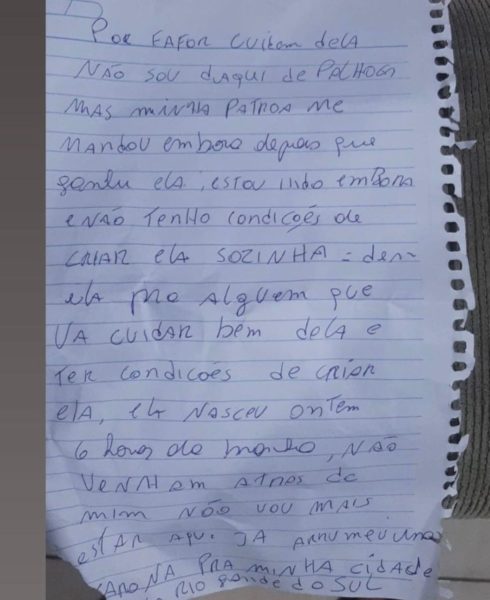 POR FAFOR CUIDEM dELA
NÃO SOU dAQUI de PALHOÇA
MAS MINHA PATROA Me
MANdOU embora depois que
ela, estou indo EMBORA
e NÃO TENHO condições de
CRIAR elA SOZINHA = dem
ela pra Alguem que
VA CUIDAR bem dela e
TER condicões de CRIAR
elA, elA NASCeu ONTem
6 horas da manhã, NÃO
VeNHAM ATRAS de
mim NÃO VOU MAIS
eSTAR AQUI JÁ ARRUMEI uma
CARONA PRA MINHA CIDADE
RIO GRANde do SUL